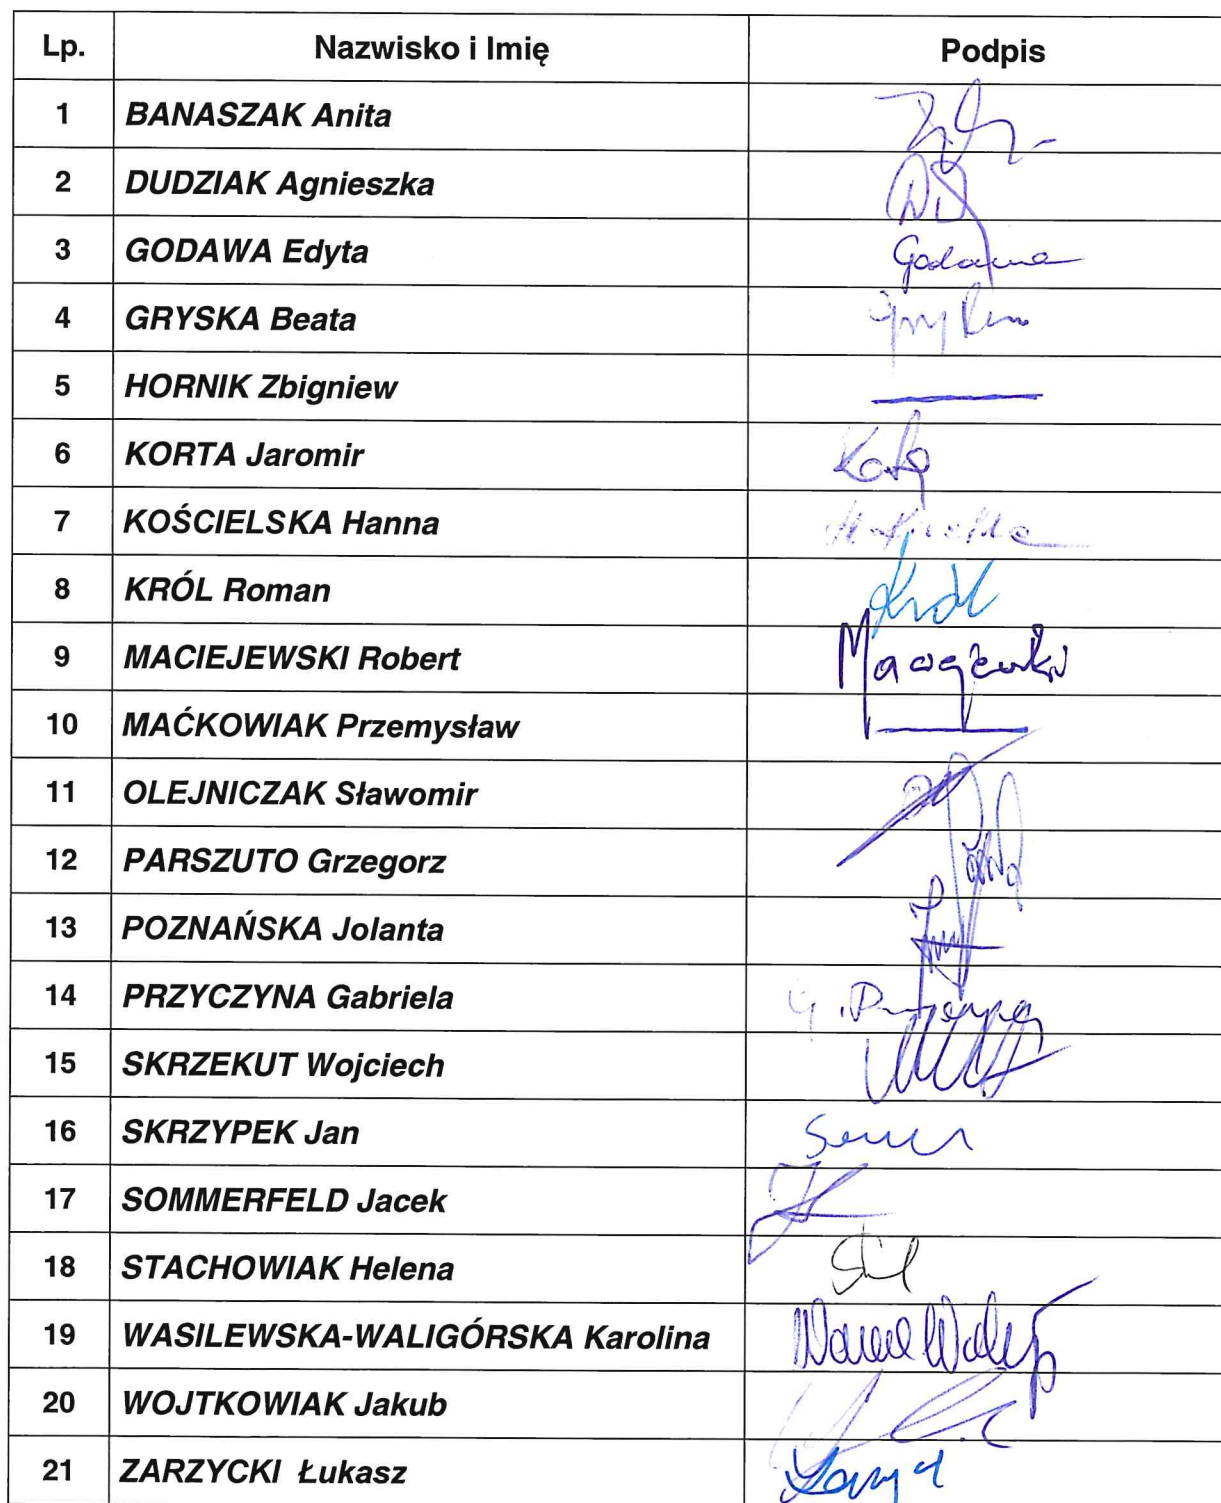 Lp. Nazwisko i Imię Podpis
1 BANASZAK Anita
2 DUDZIAK Agnieszka
3 GODAWA Edyta Godawa
4 GRYSKA Beata
5 HORNIK Zbigniew
6 KORTA Jaromir
7 KOŚCIELSKA Hanna
8 KRÓL Roman Król
9 MACIEJEWSKI Robert Maciejewski
10 MAĆKOWIAK Przemysław
11 OLEJNICZAK Sławomir
12 PARSZUTO Grzegorz
13 POZNAŃSKA Jolanta
14 PRZYCZYNA Gabriela
15 SKRZEKUT Wojciech
16 SKRZYPEK Jan
17 SOMMERFELD Jacek
18 STACHOWIAK Helena
19 WASILEWSKA-WALIGÓRSKA Karolina
20 WOJTKOWIAK Jakub
21 ZARZYCKI Łukasz